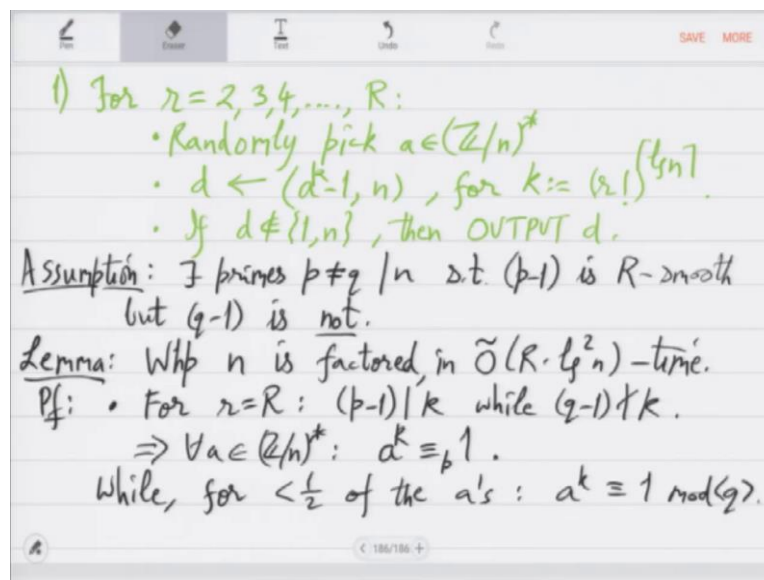 Pen Eraser Text Undo Redo SAVE MORE
1) For r = 2, 3, 4, ...., R:
• Randomly pick a ∈ (ℤ/n)*
• d ← (a^k-1, n), for k := (r!)^⌈lg n⌉.
• If d ∉ {1, n}, then OUTPUT d.
Assumption: ∃ primes p ≠ q | n s.t. (p-1) is R-smooth
but (q-1) is not.
Lemma: Whp n is factored, in Õ(R·lg²n)-time.
Pf: • For r=R: (p-1) | k while (q-1) ∤ k.
⇒ ∀a ∈ (ℤ/n)*: a^k ≡_p 1.
While, for < 1/2 of the a's: a^k ≡ 1 mod⟨q⟩.
< 186/186 +